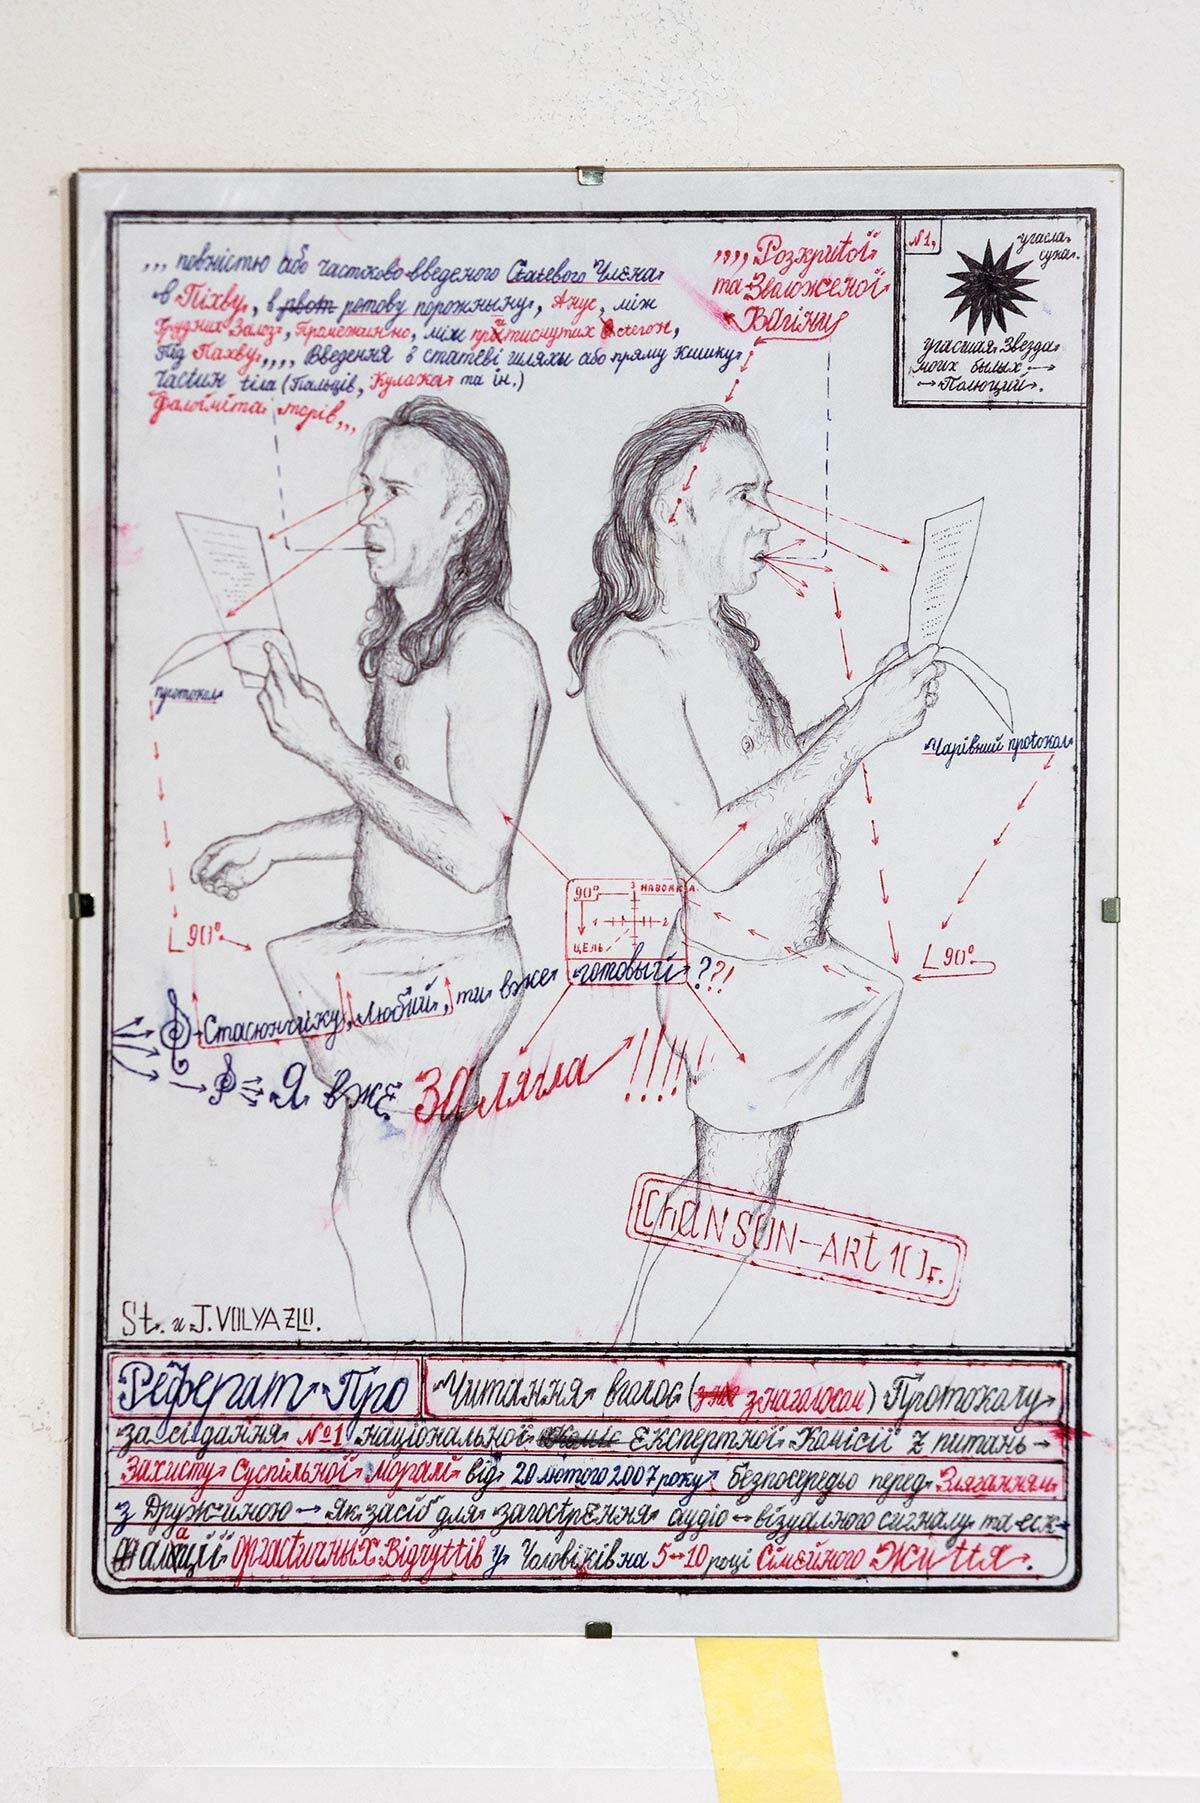 ,,, повністю або частково введеного Статевого Члена
в Піхву, в ротову порожнину, Анус, між
Грудних Залоз, Промежинно, між притиснутих стегон,
Під Пахву,,,, Введення в статеві шляхи або пряму кишку
частин тіла (Пальців, Кулака та ін.)
Фалоімітаторів,,,
,,,, Розкритої
та Зволоженої
Вагіни
№1,
угасла
сука.
угасшая Звезда
моих былых
Полюций.
протокол
Чарівний протокол
90°
3 НАВОДКА
1 2
ЦЕЛЬ
90°.
90°.
Стасюнчику, Любий, ти вже готовый ??!
Я вже ЗАлягла !!!!!
ChANSON-ARt 10г.
St. и J. VOLYAZLO.
Реферат Про
Читання вголос (з наголосом) Протоколу
засідання №1 Національної Експертної Комісії Z питань
Захисту Суспільної Моралі від 20 лютого 2007 року, безпосередьо перед Зляганням
з Дружиною → Як засіб для загострЕння аудіо ↔ візуального сигналу та еск-
алації оргастичных Відчуттів у Чоловіків на 5↔10 році Сімейного Життя.